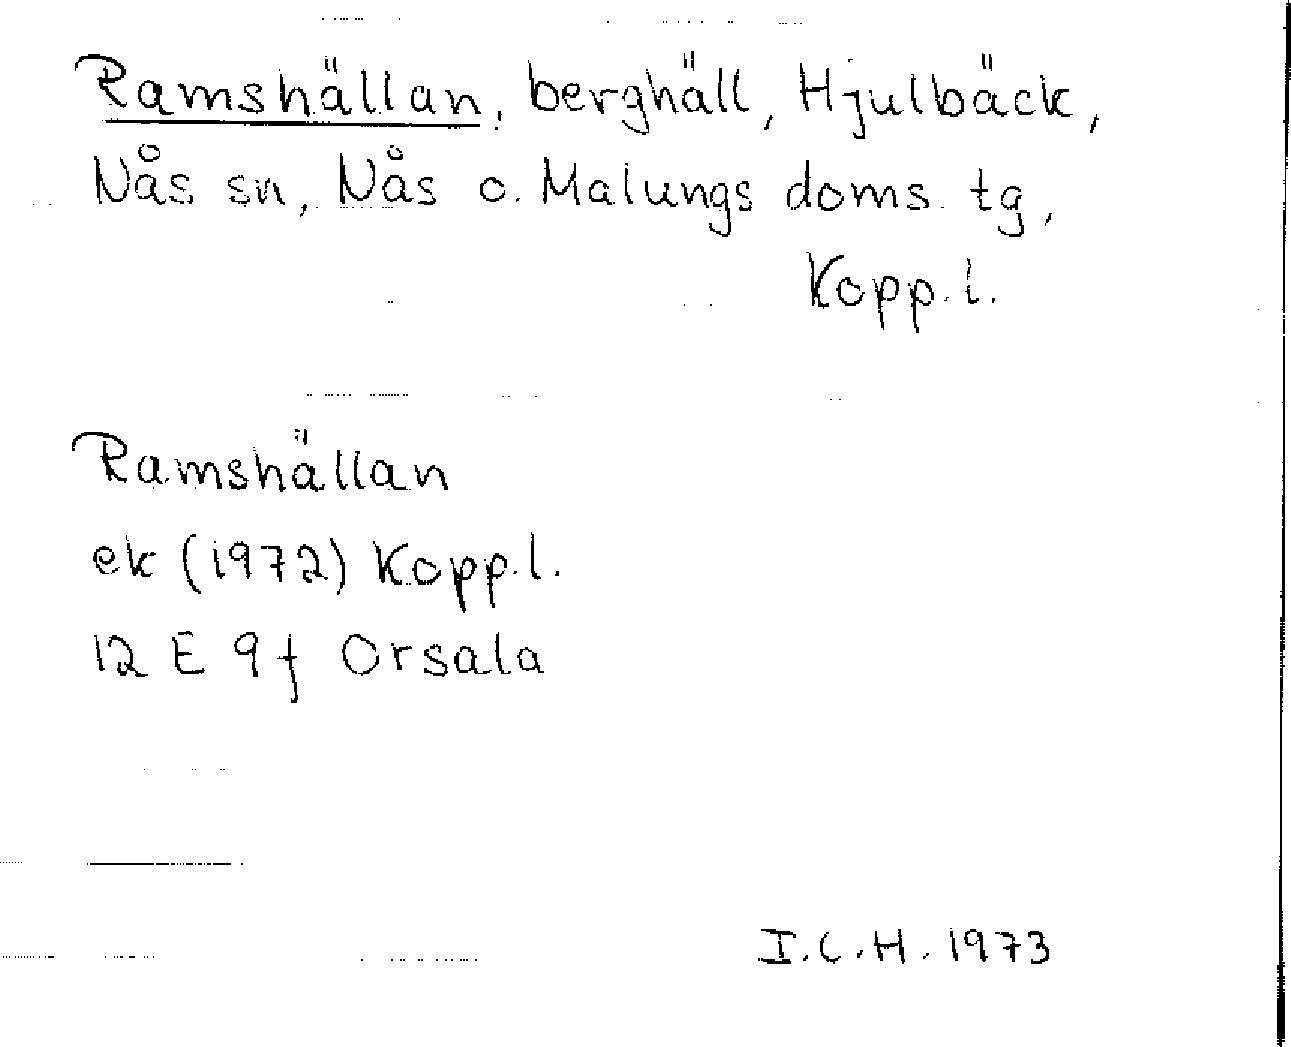 Ramshällan, berghäll, Hjulbäck,
Nås sn, Nås o. Malungs doms. tg,
Kopp. l.
Ramshällan
ek (1972) Kopp. l.
12 E 9 f Orsala
I.C.H. 1973